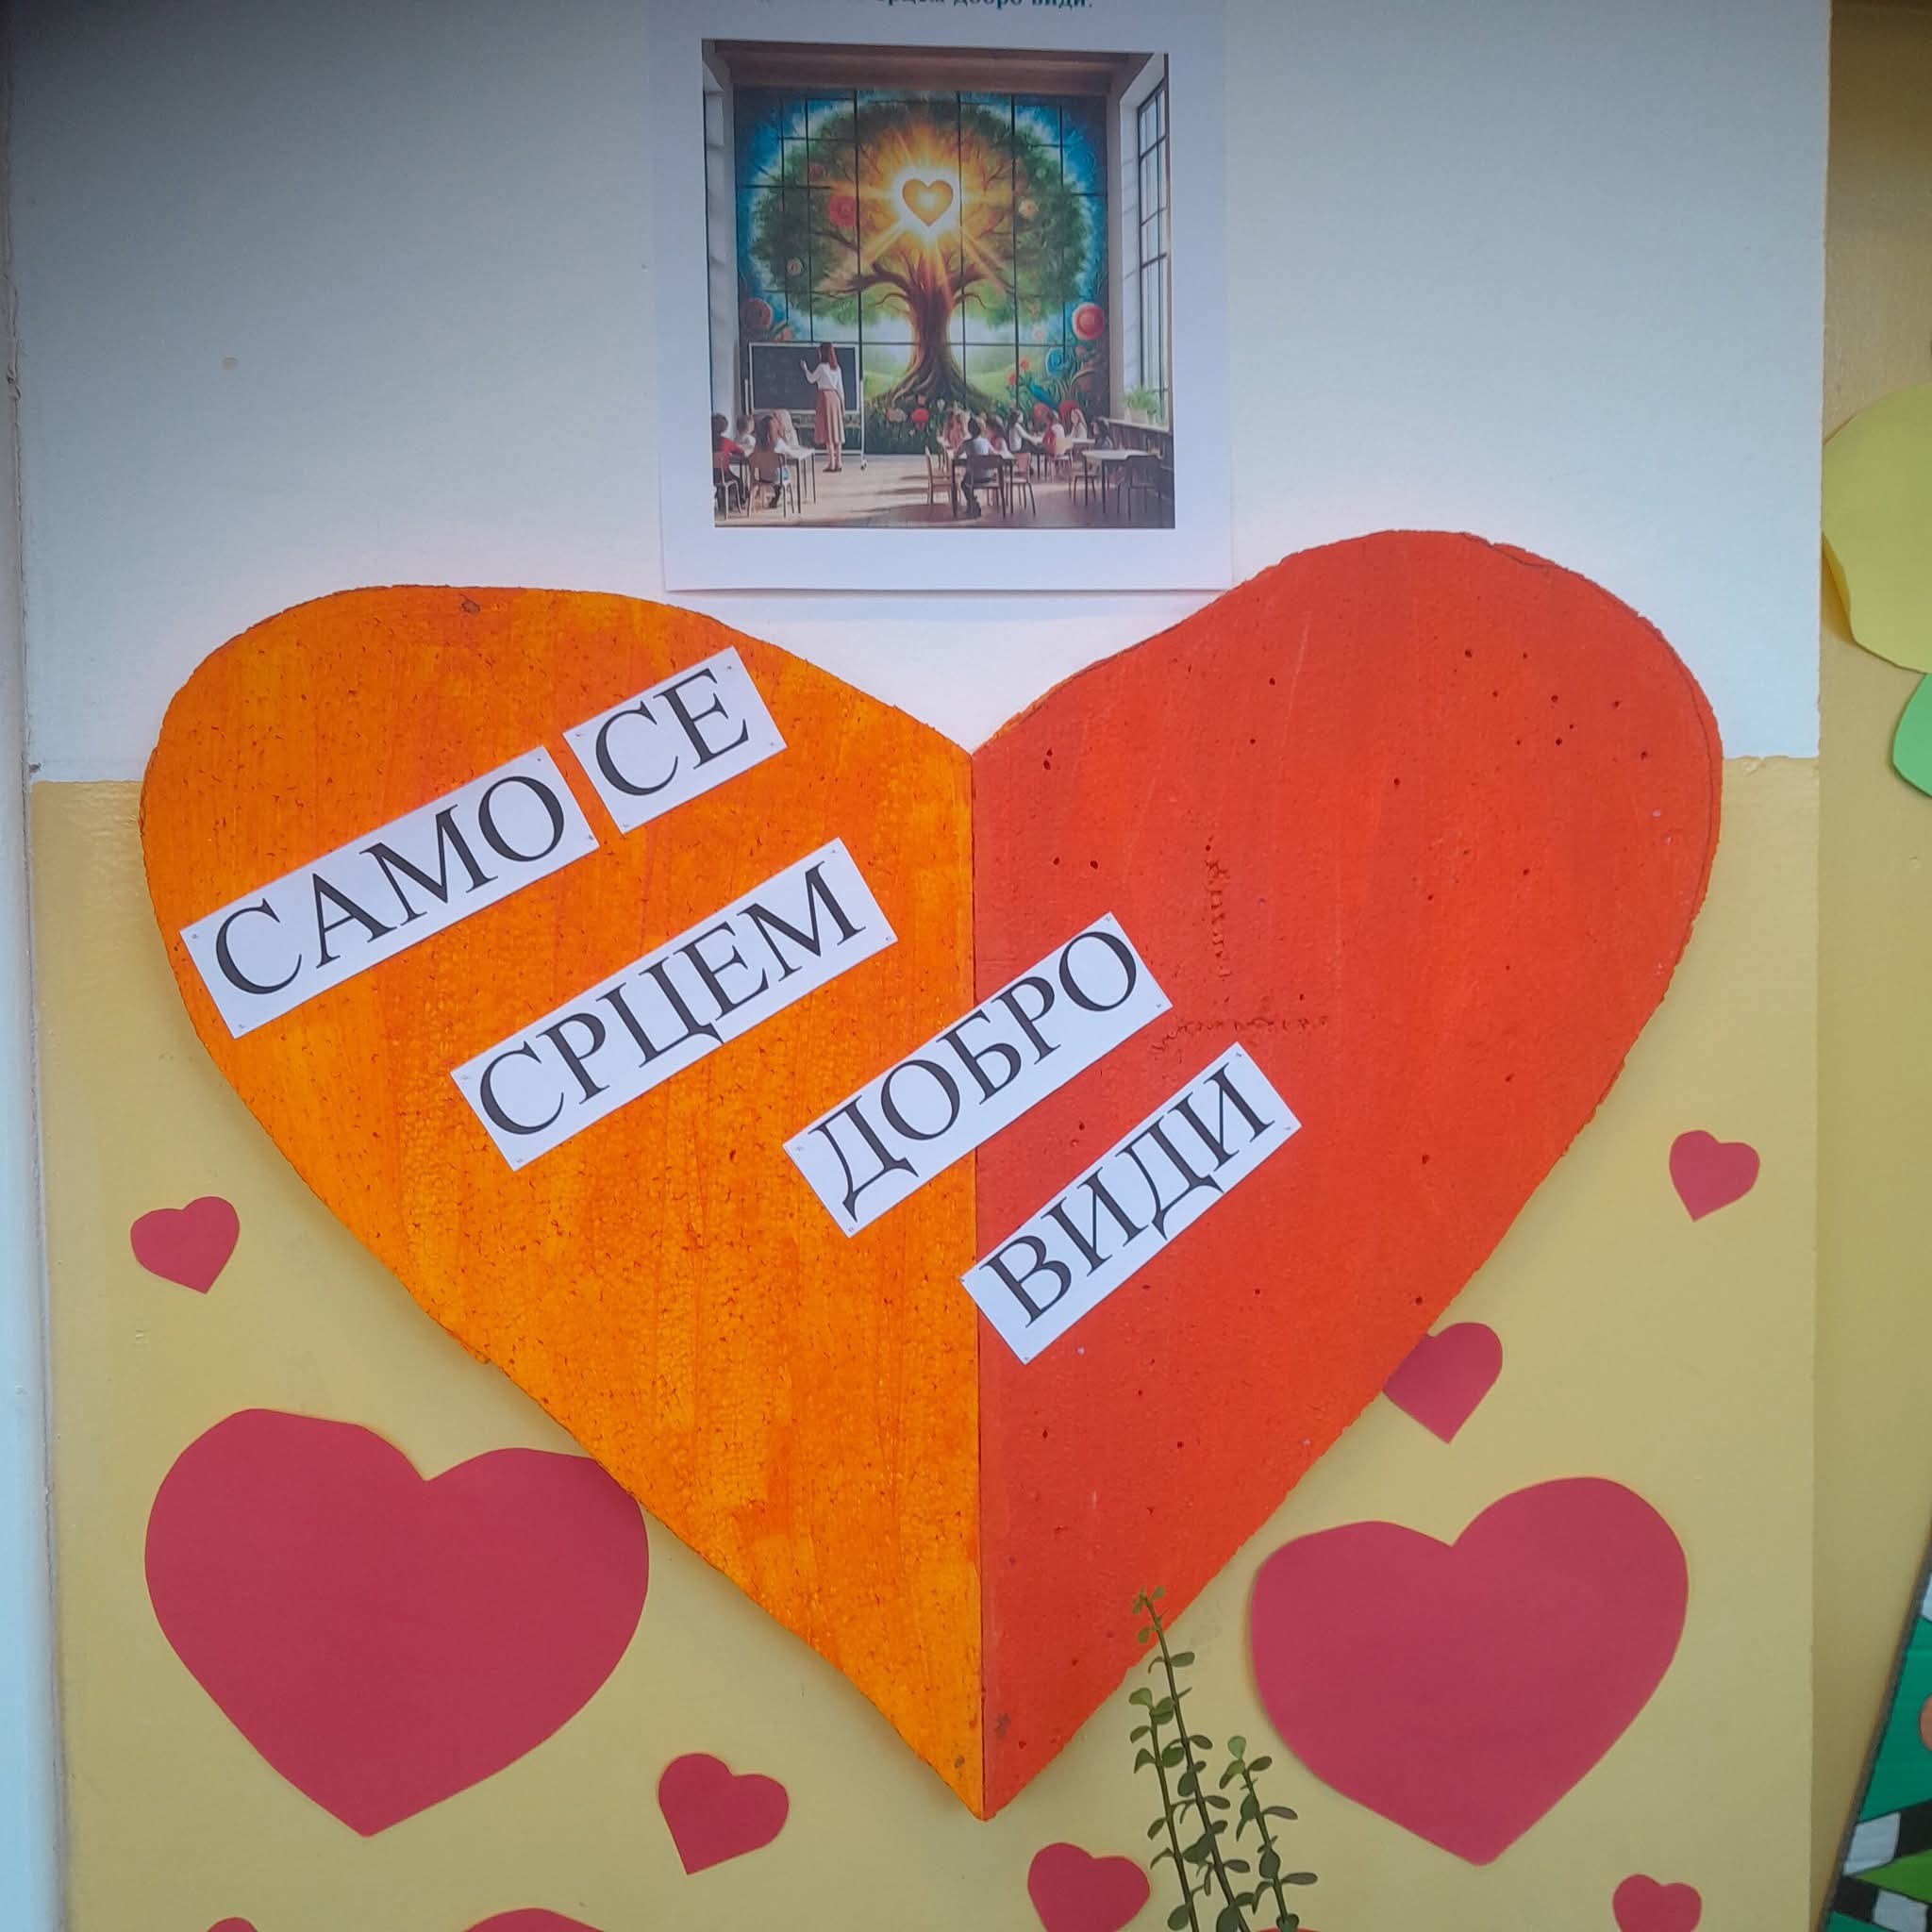 добро види.
САМО СЕ
СРЦЕМ
ДОБРО
ВИДИ